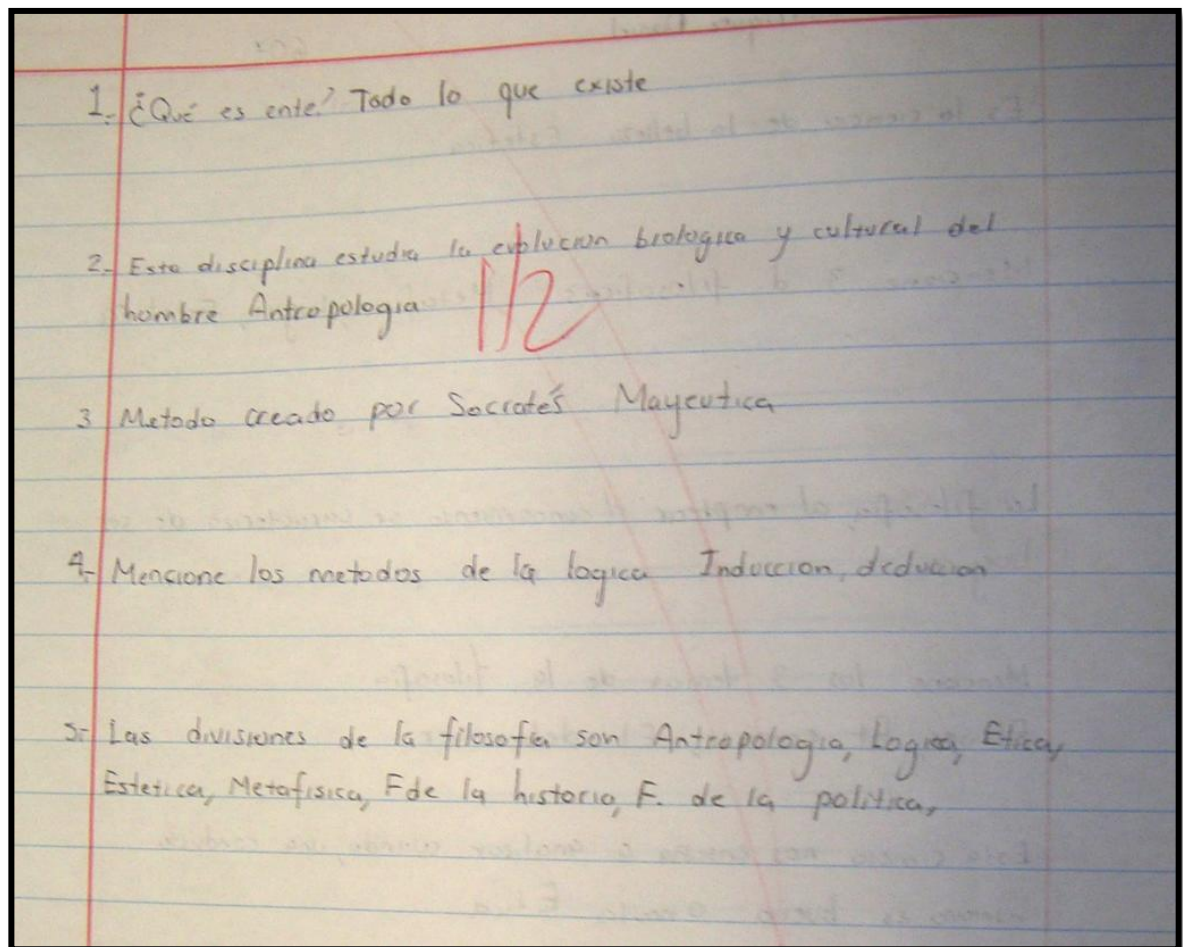 1.- ¿Qué es ente? Todo lo que existe
2.- Esta disciplina estudia la evolucion biologica y cultural del
hombre Antropologia
1/2
3 Metodo creado por Socrates Mayeutica
4.- Mencione los metodos de la logica Induccion, deducion
5.- Las divisiones de la filosofia son Antropologia, Logica, Etica,
Estetica, Metafisica, F de la historia, F. de la politica,